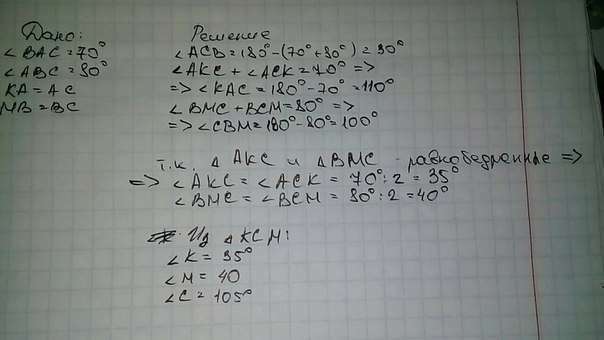 Дано:
∠BAC = 70°
∠ABC = 80°
KA = AC
MB = BC
Решение
∠ACB = 180° - (70° + 80°) = 30°
∠AKC + ∠ACK = 70° =>
=> ∠KAC = 180° - 70° = 110°
∠BMC + BCM = 80° =>
=> ∠CBM = 180° - 80° = 100°
т.к. △ AKC и △ BMC - равнобедренные =>
=> ∠AKC = ∠ACK = 70° : 2 = 35°
∠BMC = ∠BCM = 80° : 2 = 40°
Из △ KCM:
∠K = 35°
∠M = 40
∠C = 105°